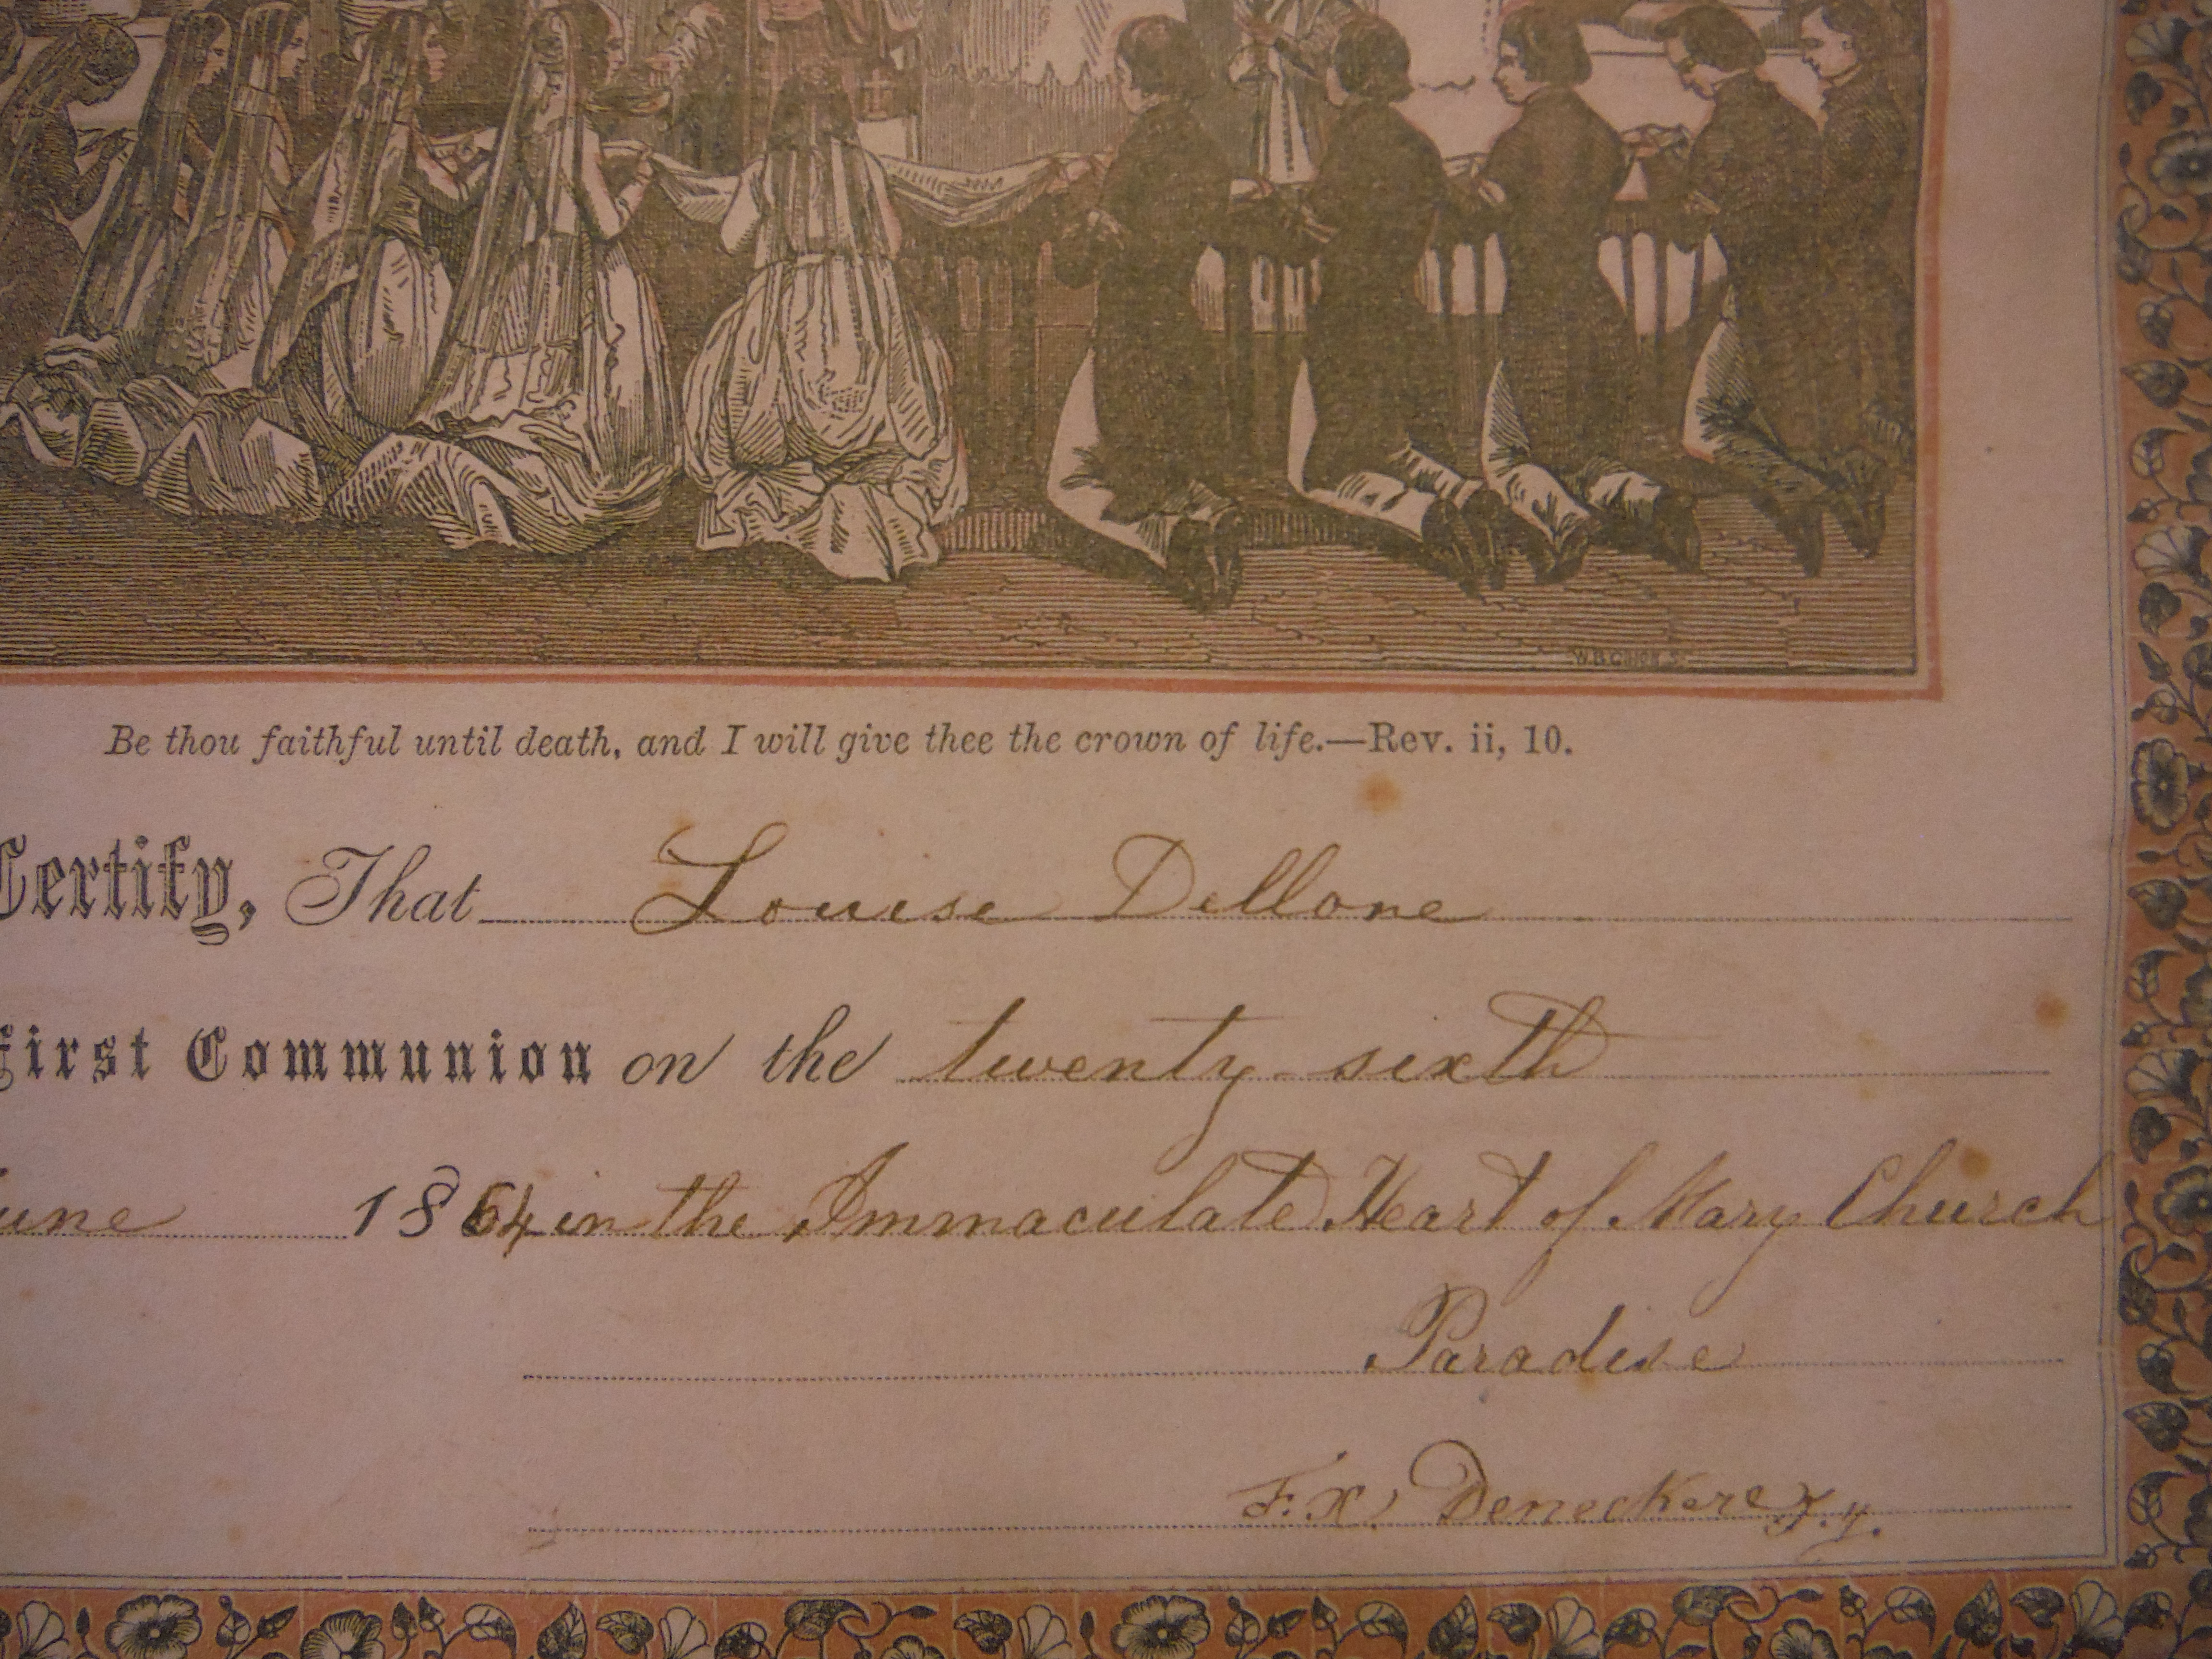 Be thou faithful until death, and I will give thee the crown of life.—Rev. ii, 10.
Certify, That Louise Dellone
First Communion on the twenty sixth
une 1864 in the Immaculate Heart of Mary Church
Paradise
F. X. Deneckere